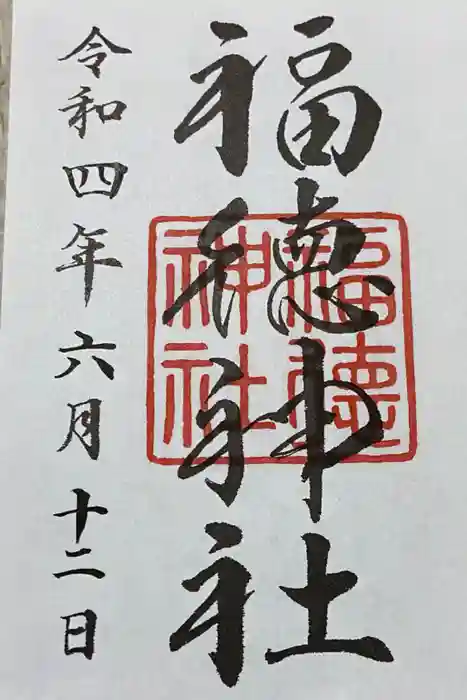 福徳神社
令和四年六月十二日
福徳
神社